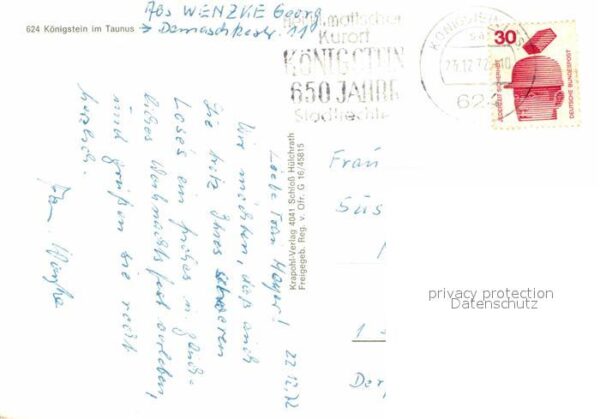 Abs WENZKE Georg
624 Königstein im Taunus → Damaschkestr. 11
heilklimatischer
Kurort
KÖNIGSTEIN
650 JAHRE
Stadtrechte
KÖNIGSTEIN
23.12.72
624
30
JEDERZEIT SICHERHEIT
DEUTSCHE BUNDESPOST
22.12.72
Liebe Frau Mayer!
Wir möchten, daß auch
Sie trotz Ihres schweren
Loses ein frohes u. glück-
liches Weihnachtsfest erleben,
und grüßen Sie recht
herzlich.
Fam. Wenzke
Krapohl-Verlag 4041 Schloß Hülchrath
Freigegeb. Reg. v. Ofr. G 16/45815
Frau
Süs
privacy protection
Datenschutz